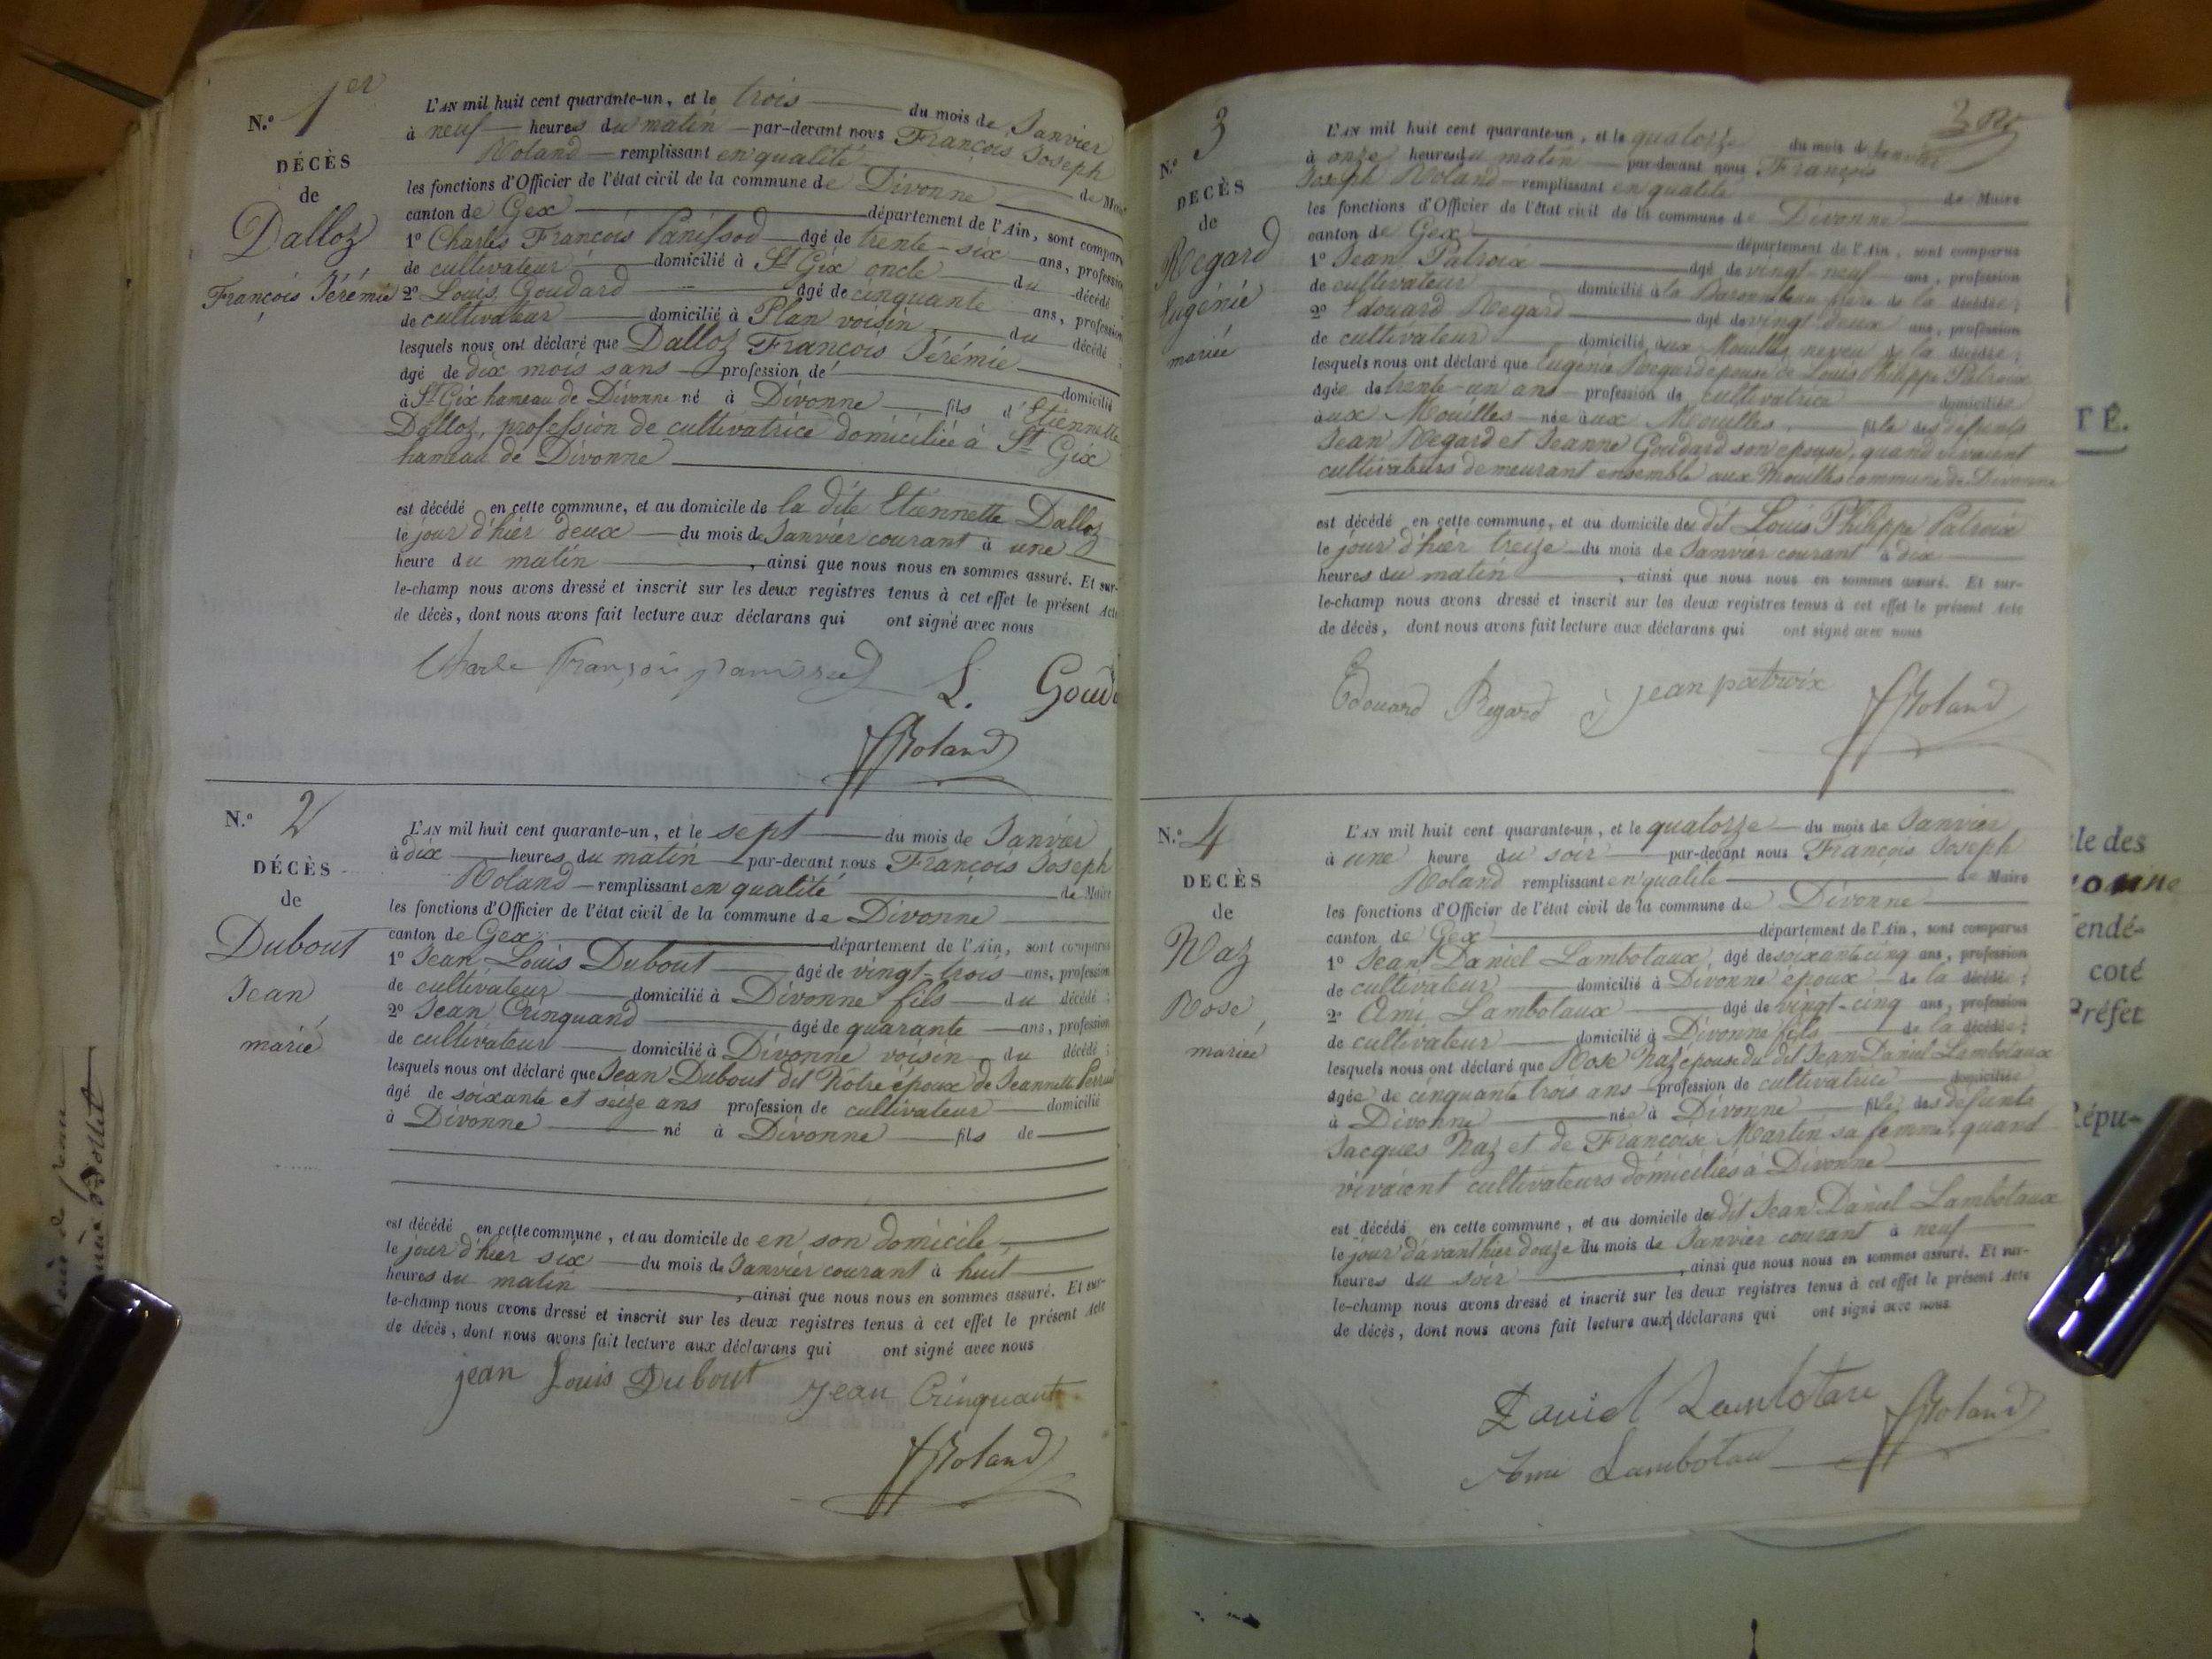 N.° 1er
DÉCÈS
de
Dalloz
François Jérémie
L'AN mil huit cent quarante-un, et le trois du mois de Janvier
à neuf heures du matin par-devant nous François Joseph
Roland remplissant en qualité de Maire
les fonctions d'Officier de l'état civil de la commune de Divonne
canton de Gex département de l'Ain, sont comparu
1° Charles François Panissod âgé de trente-six ans, profession
de cultivateur domicilié à St Gix oncle du décédé
2° Louis Goudard âgé de cinquante ans, profession
de cultivateur domicilié à Plan voisin du décédé
lesquels nous ont déclaré que Dalloz François Jérémie
âgé de dix mois sans profession de domicilié
à St Gix hameau de Divonne né à Divonne fils d'Etiennette
Dalloz, profession de cultivatrice domiciliée à St Gix
hameau de Divonne
est décédé en cette commune, et au domicile de la dite Etiennette Dalloz
le jour d'hier deux du mois de Janvier courant à une
heure du matin, ainsi que nous nous en sommes assuré. Et sur-
le-champ nous avons dressé et inscrit sur les deux registres tenus à cet effet le présent Acte
de décès, dont nous avons fait lecture aux déclarans qui ont signé avec nous
Charle François panissod L. Goud
Roland
N.° 2
DÉCÈS
de
Dubout
Jean
marié
L'AN mil huit cent quarante-un, et le sept du mois de Janvier
à dix heures du matin par-devant nous François Joseph
Roland remplissant en qualité de Maire
les fonctions d'Officier de l'état civil de la commune de Divonne
canton de Gex département de l'Ain, sont comparus
1° Jean Louis Dubout âgé de vingt-trois ans, profession
de cultivateur domicilié à Divonne fils du décédé;
2° Jean Crinquand âgé de quarante ans, profession
de cultivateur domicilié à Divonne voisin du décédé;
lesquels nous ont déclaré que Jean Dubout dit Notre époux de Jeannette
âgé de soixante et seize ans profession de cultivateur domicilié
à Divonne né à Divonne fils de
est décédé en cette commune, et au domicile de en son domicile,
le jour d'hier six du mois de Janvier courant à huit
heures du matin, ainsi que nous nous en sommes assuré. Et sur-
le-champ nous avons dressé et inscrit sur les deux registres tenus à cet effet le présent Acte
de décès, dont nous avons fait lecture aux déclarans qui ont signé avec nous
jean Louis Dubout jean Crinquant
Roland
3
N.° 3
DÉCÈS
de
Regard
Eugénie
mariée
L'AN mil huit cent quarante-un, et le quatorze du mois de Janvier
à onze heures du matin par-devant nous François
Joseph Roland remplissant en qualité de Maire
les fonctions d'Officier de l'état civil de la commune de Divonne
canton de Gex département de l'Ain, sont comparus
1° Jean Patroix âgé de vingt-neuf ans, profession
de cultivateur domicilié à la beau frère de la décédée;
2° Edouard Regard âgé de vingt deux ans, profession
de cultivateur domicilié aux Mouilles neveu de la décédée;
lesquels nous ont déclaré que Eugénie Regard épouse de Louis Philippe Patroix
âgée de trente-un ans profession de cultivatrice domiciliée
aux Mouilles née aux Mouilles, fille des défunts
Jean Regard et Jeanne Goudard son épouse, quand vivaient
cultivateurs demeurant ensemble aux Mouilles commune de Divonne
est décédé en cette commune, et au domicile du dit Louis Philippe Patroix
le jour d'hier treize du mois de Janvier courant à dix
heures du matin, ainsi que nous nous en sommes assuré. Et sur-
le-champ nous avons dressé et inscrit sur les deux registres tenus à cet effet le présent Acte
de décès, dont nous avons fait lecture aux déclarans qui ont signé avec nous
Edouard Regard jean patroix Roland
N.° 4
DECÈS
de
Naz
Rose
mariée
L'AN mil huit cent quarante-un, et le quatorze du mois de Janvier
à une heure du soir par-devant nous François Joseph
Roland remplissant en qualité de Maire
les fonctions d'Officier de l'état civil de la commune de Divonne
canton de Gex département de l'Ain, sont comparus
1° Jean Daniel Lambotaux, âgé de soixante cinq ans, profession
de cultivateur domicilié à Divonne époux de la décédée;
2° Ami Lambotaux âgé de vingt-cinq ans, profession
de cultivateur domicilié à Divonne fils de la décédée;
lesquels nous ont déclaré que Rose Naz épouse du dit Jean Daniel Lambotaux
âgée de cinquante trois ans profession de cultivatrice domiciliée
à Divonne née à Divonne fille des défunts
Jacques Naz et de Françoise Martin sa femme, quand
vivaient cultivateurs domiciliés à Divonne
est décédé en cette commune, et au domicile du dit Jean Daniel Lambotaux
le jour d'avant hier douze du mois de Janvier courant à neuf
heures du soir, ainsi que nous nous en sommes assuré. Et sur-
le-champ nous avons dressé et inscrit sur les deux registres tenus à cet effet le présent Acte
de décès, dont nous avons fait lecture aux déclarans qui ont signé avec nous
Daniel Lambotau Roland
Ami Lambotau
TÉ.
le des
endé-
coté
Préfet
Répu-